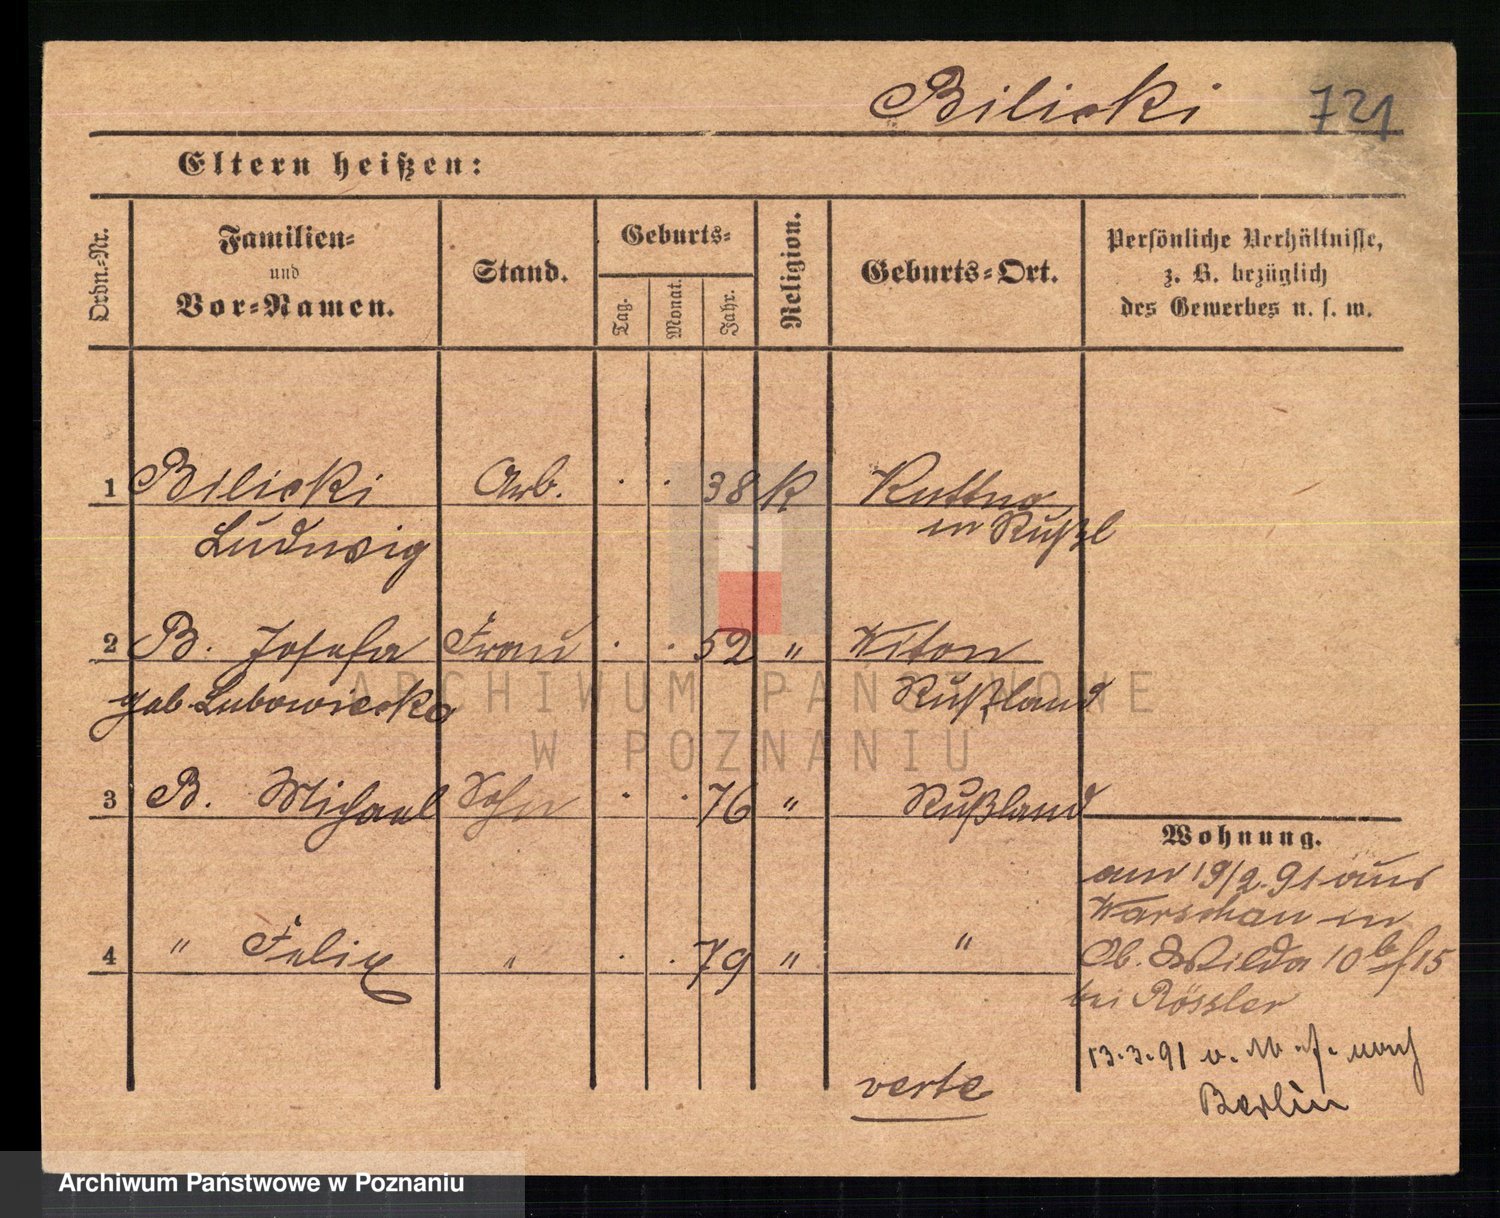 Bilicki 721
Eltern heißen:
Ordn.-Nr.
Familien-
und
Vor-Namen.
Stand.
Geburts-
Tag.
Monat.
Jahr.
Religion.
Geburts-Ort.
Persönliche Verhältnisse,
z. B. bezüglich
des Gewerbes u. s. w.
1 Bilicki Arb. . . 38 k Kuttno
Ludwig in Rußl
2 B. Josefa Frau . . 52 " Witon
geb Lubowiecka Rußland
3 B. Michael Sohn . . 76 " Rußland
Wohnung.
am 19/2. 91 aus
Warschau in
4 " Felix " . . 79 " " Ob. Wilda 10 15
bei Rössler
13.3.91 v. nach
Berlin
verte
ARCHIWUM PAŃSTWOWE
W POZNANIU
Archiwum Państwowe w Poznaniu